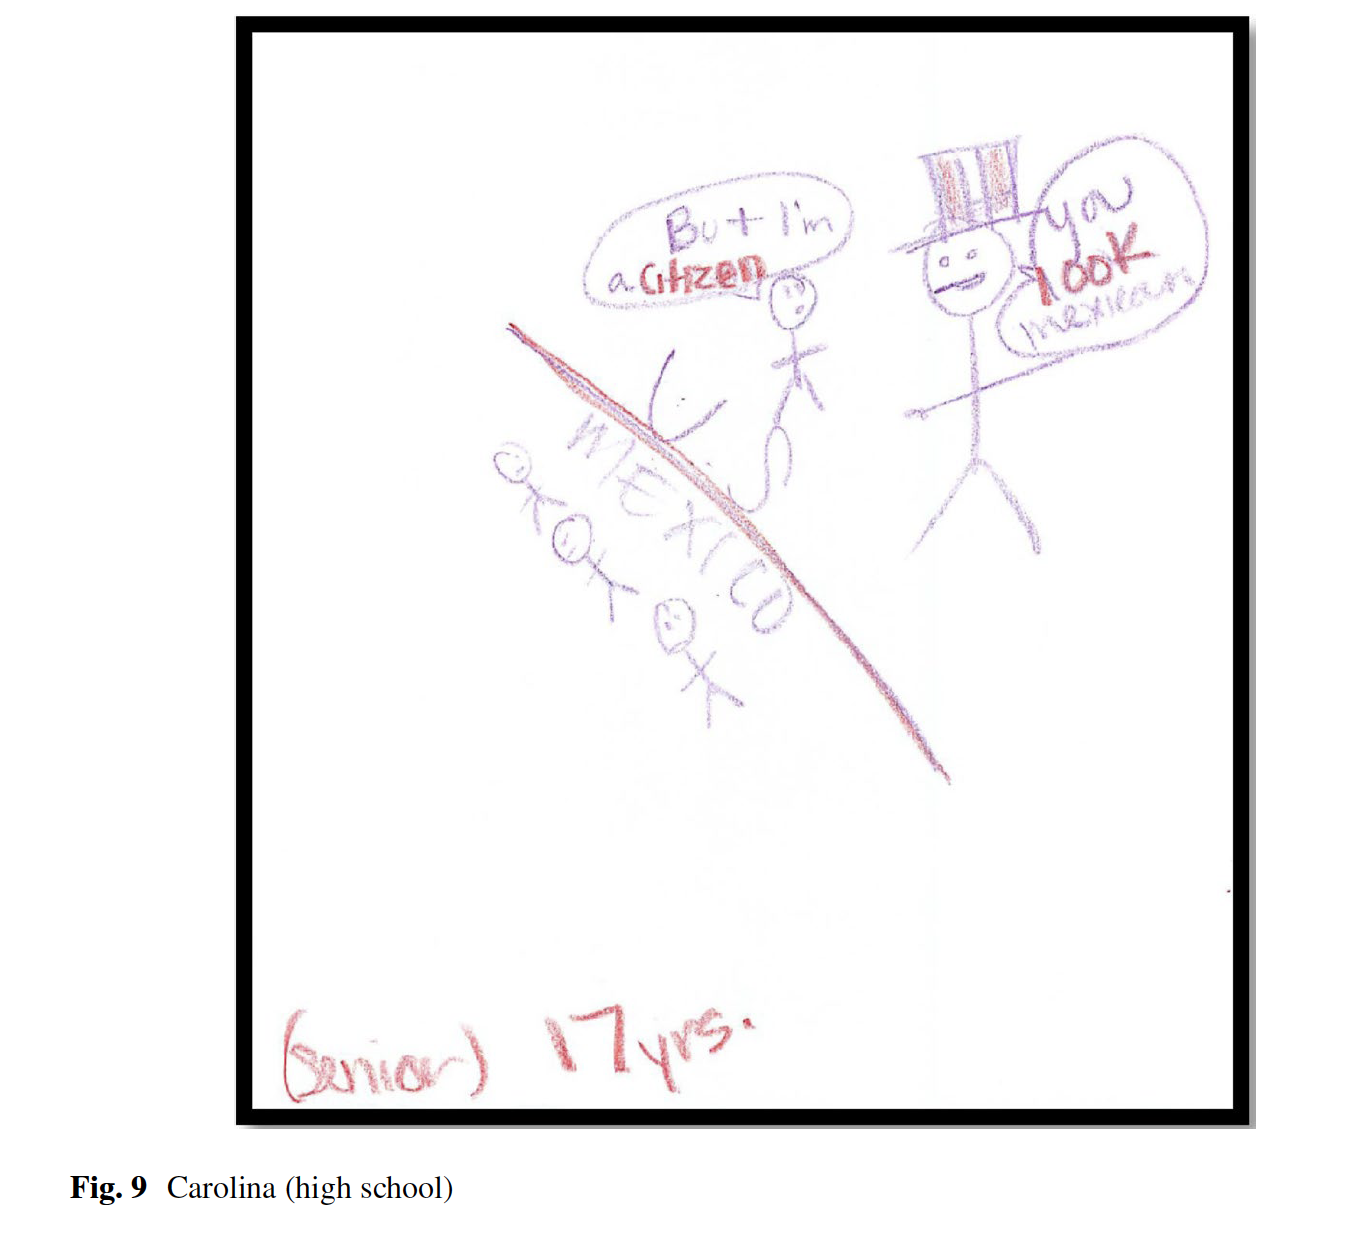 But I'm
a citizen
you
look
mexican
MEXICO
(senior) 17 yrs.
Fig. 9 Carolina (high school)